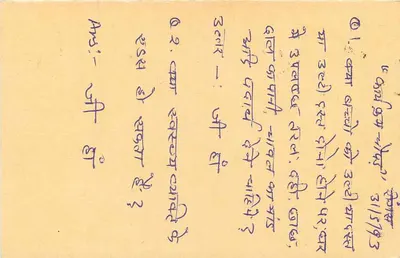 "कार्यक्रम-नोएडा" सेक्टर
31/5/93
Q 1. क्या बच्चों को उल्टी या दस्त
या उल्टी दस्त दोनों होने पर, घर
में उपलब्ध तरल, दही, छाछ,
दाल का पानी, चावल का मांड
आदि पदार्थ देने चाहिये?
उत्तर -: जी हाँ
Q 2. क्या स्वस्थ्य व्यक्ति के
एड्स हो सकता है?
Ans:- जी हाँ